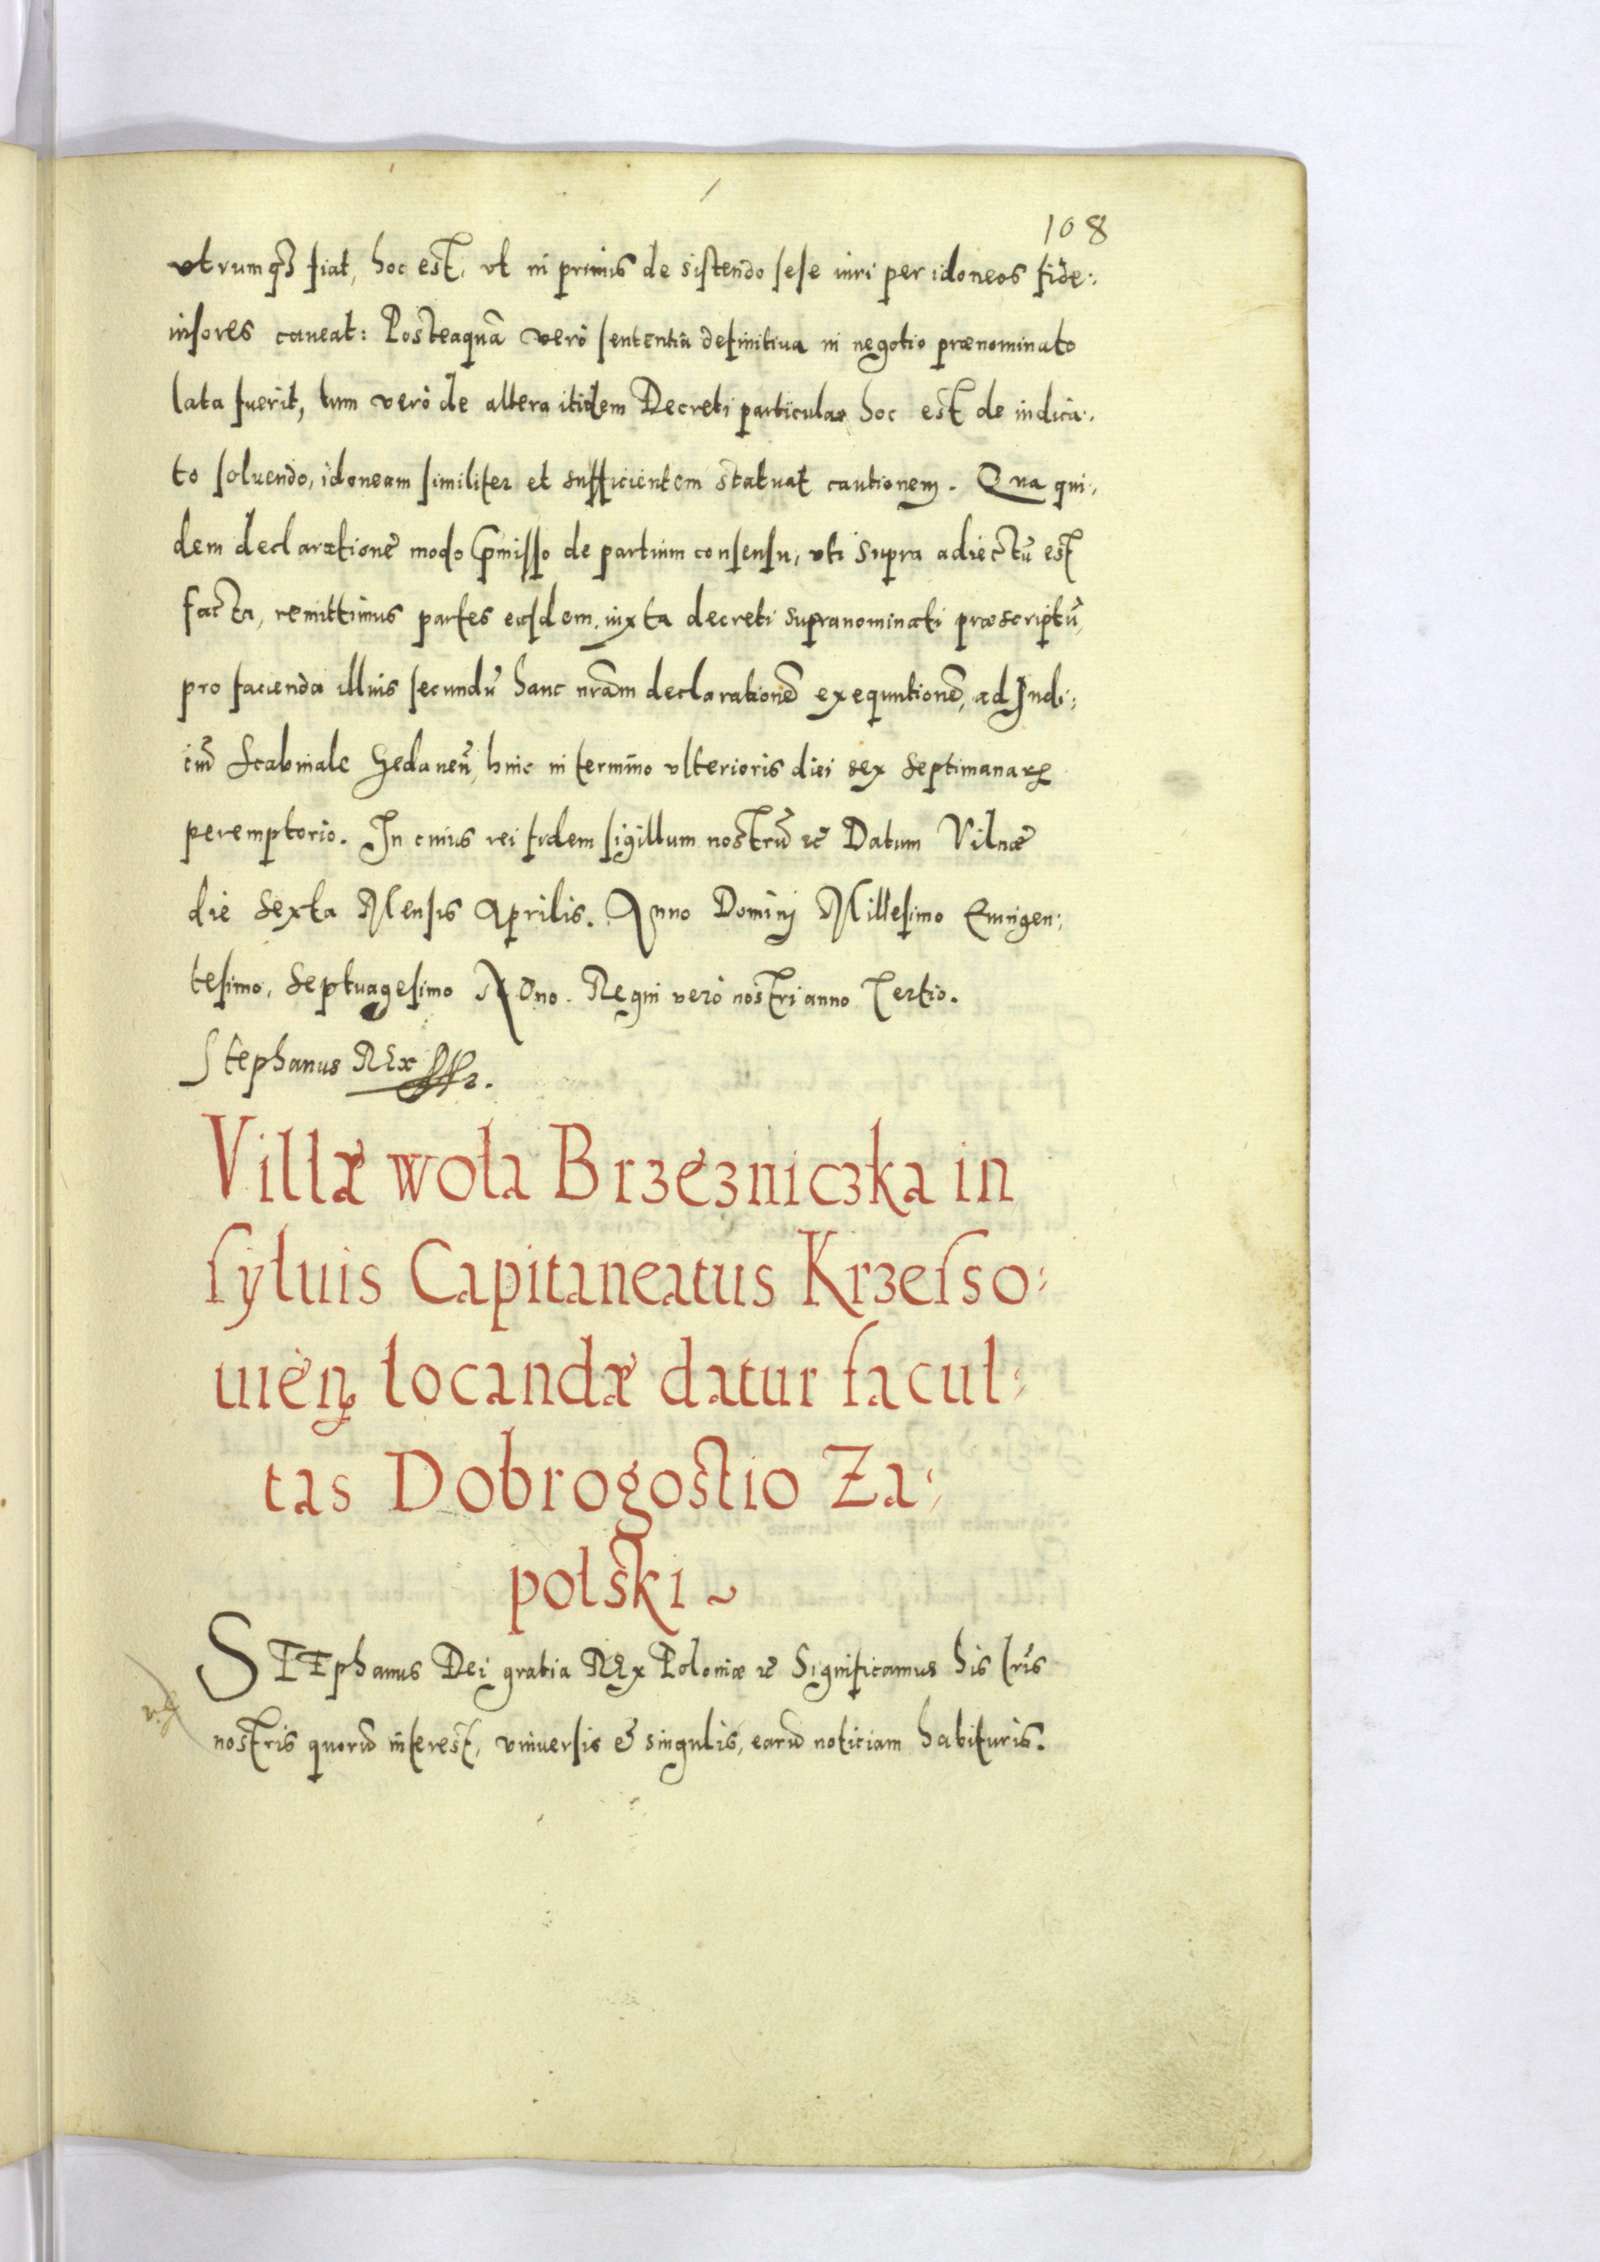 108
vtrumq3 fiat, hoc est, vt in primis de sistendo sese iuri per idoneos fide:
iusores caueat: Posteaquã verò sententia definitiua in negotio prænominato
lata fuerit, tum verò de altera itidem Decreti particula hoc est de iudica:
to soluendo, idoneam similiter et sufficientem statuat cautionem. Qua qui:
dem declaratione modo pmisso de partium consensu, vti supra adiectũ est
facta, remittimus partes easdem, iuxta decreti supranominati præscriptũ,
pro facienda illius secundũ hanc nrãm declarationẽ exequutionẽ, ad Iudi:
ciũ Scabinale Gedaneñ, hinc in termino vlterioris diei sex septimanarꝝ
peremptorio. In cuius rei fidem sigillum nostrũ &c̃ Datum Vilnæ
die Sexta Mensis Aprilis. Anno Dominj Millesimo Quingen:
tesimo, Septuagesimo Nono. Regni verò nostri anno Tertio.
Stephanus REx sst.
Villæ wola Brzezniczka in
syluis Capitaneatus Krzesso:
uieñ locandæ datur facul:
tas Dobrogostio Za:
polski ~
STEphanus Dei gratia REx Poloniæ &c̃ Significamus his lrĩs
nostris quorũ interest, vniuersis & singulis, earũ noticiam habituris.